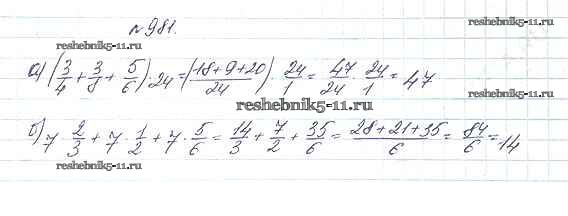 №981.
reshebnik5-11.ru
а) (3/4 + 3/8 + 5/6) · 24 = (18+9+20)/24 · 24/1 = 47/24 · 24/1 = 47
reshebnik5-11.ru reshebnik5-11.ru
б) 7 · 2/3 + 7 · 1/2 + 7 · 5/6 = 14/3 + 7/2 + 35/6 = (28+21+35)/6 = 84/6 = 14
reshebnik5-11.ru reshebnik5-11.ru